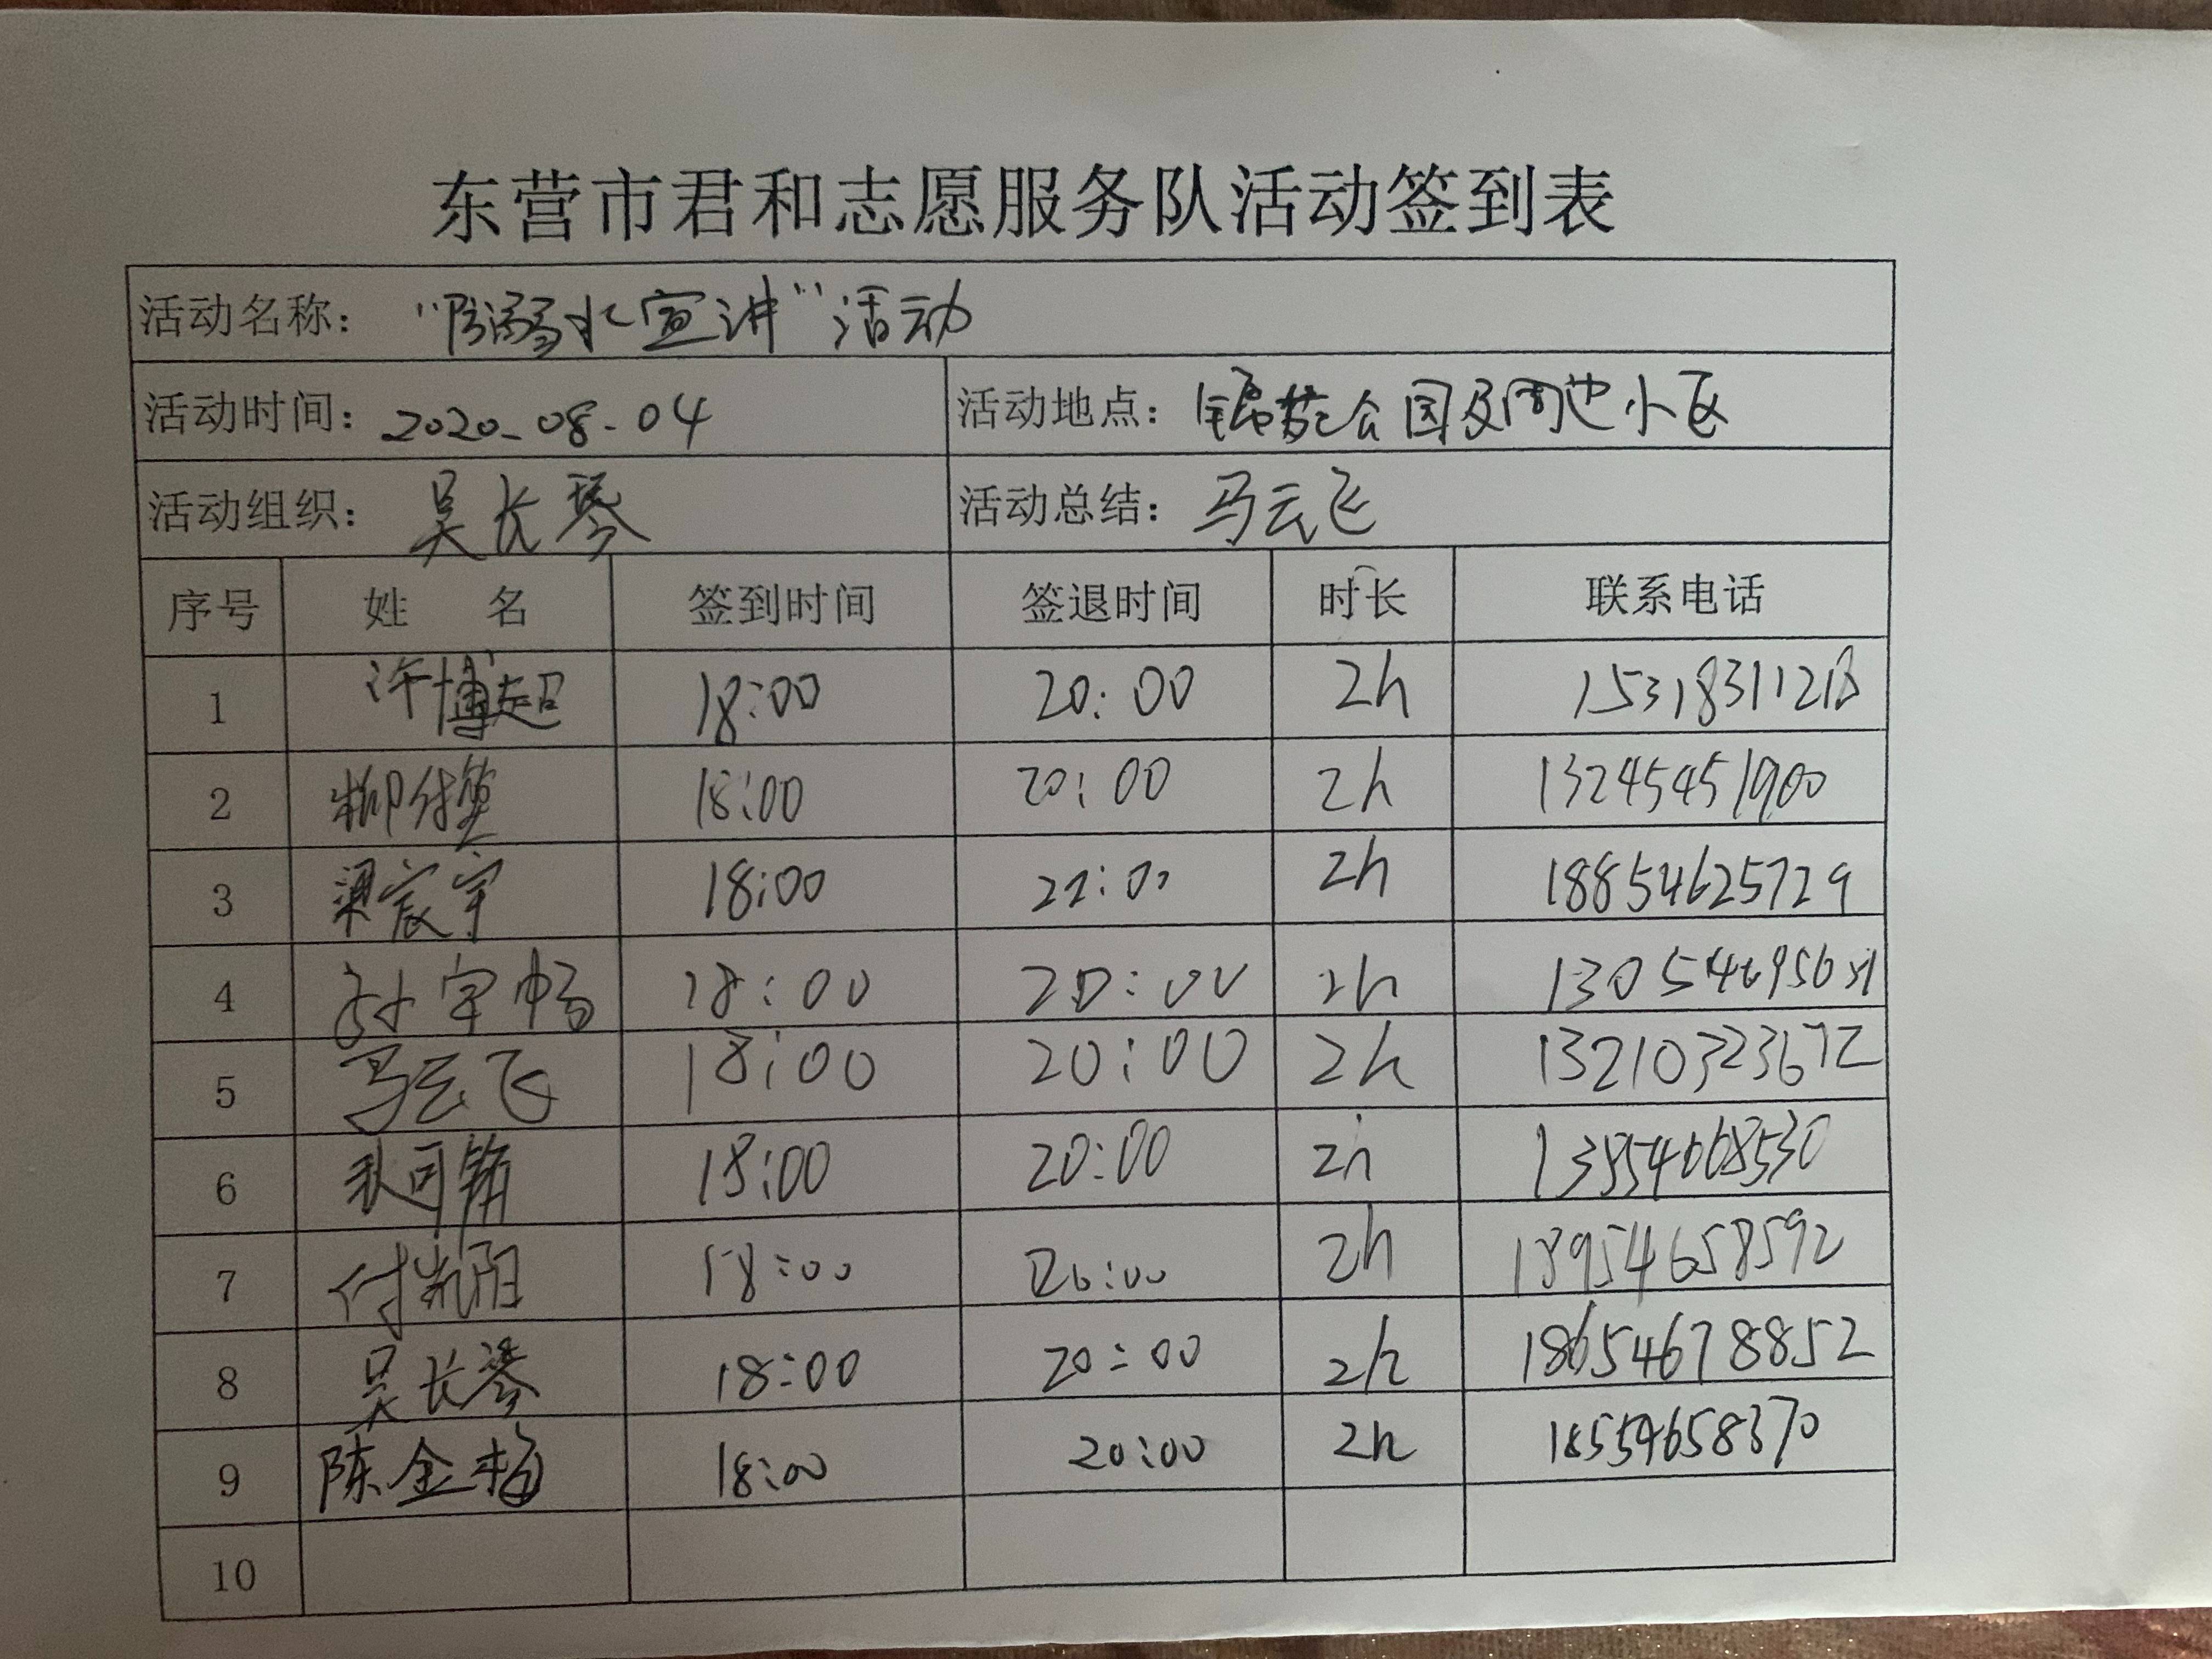 东营市君和志愿服务队活动签到表
活动名称： “防溺水宣讲”活动
活动时间：2020-08-04 活动地点：锦苑公园及周边小区
活动组织：吴长琴 活动总结：马云飞
序号 姓 名 签到时间 签退时间 时长 联系电话
1 许博超 18:00 20:00 2h
2 18:00 20:00 2h 13245451900
3 梁宸宇 18:00 2h 18854625729
4 孙宇畅 18:00 20:00 2h
5 马云飞 18:00 20:00 2h 13210323672
6 18:00 20:00 2h
7 付凯阳 18:00 20:00 2h 18954658592
8 吴长琴 18:00 20:00 2h 18654678852
9 陈金梅 18:00 20:00 2h 18554658370
10